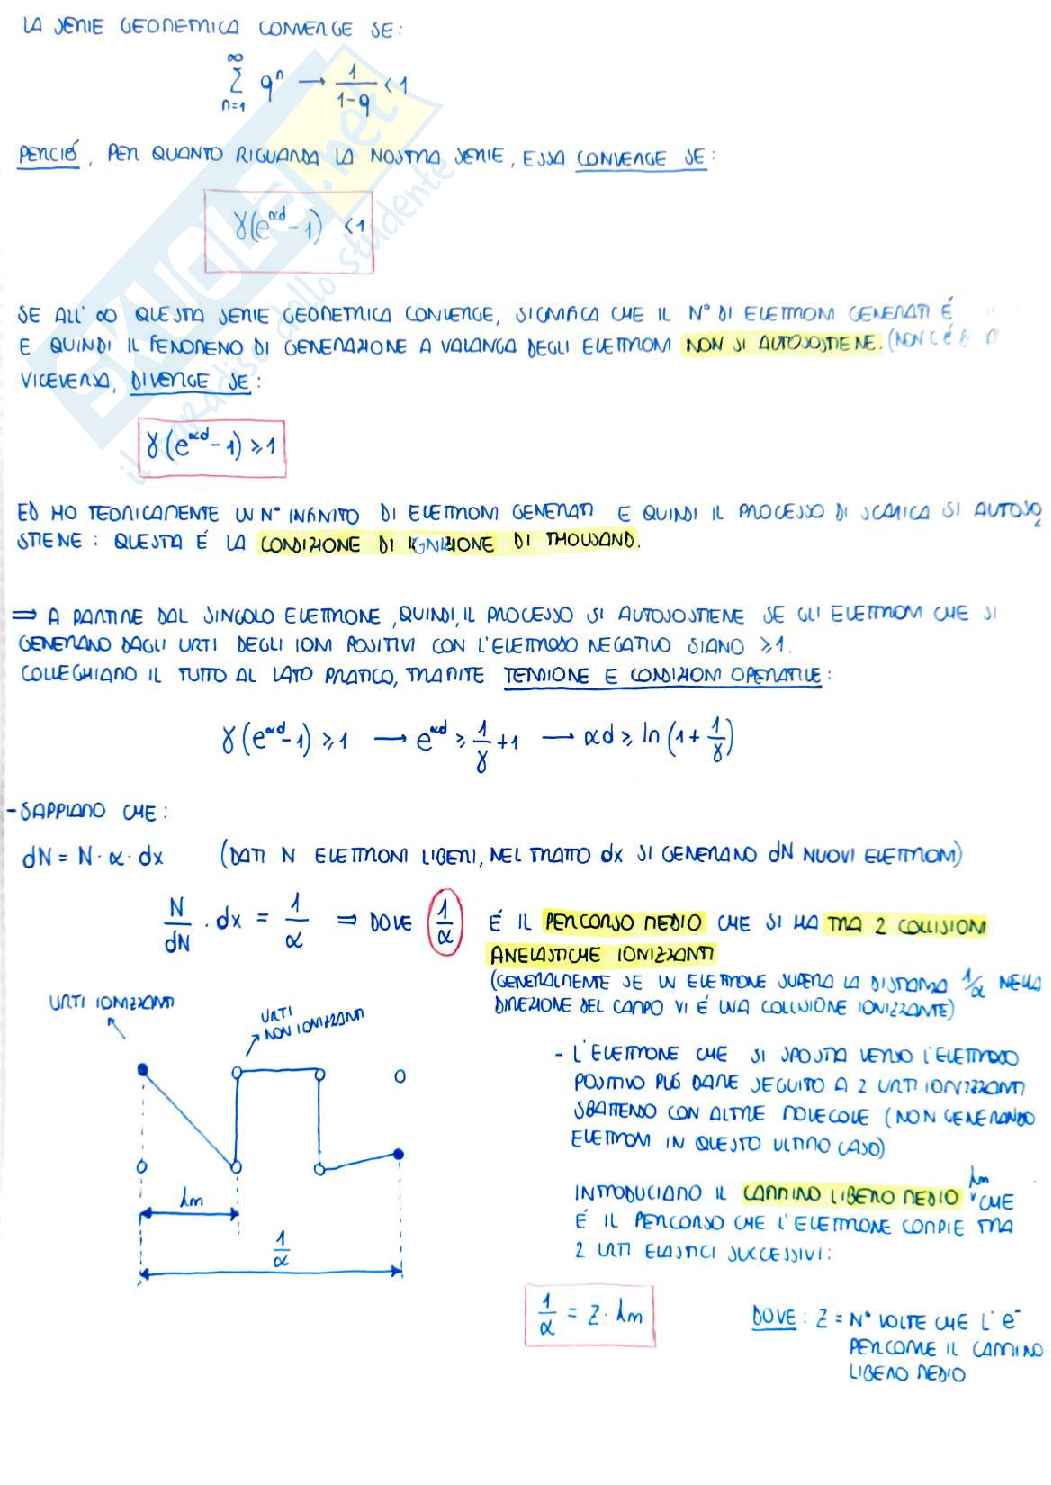 LA SERIE GEOMETRICA CONVERGE SE:
∞ Σ n=1 qⁿ → 1/(1-q) < 1
PERCIÓ, PER QUANTO RIGUARDA LA NOSTRA SERIE, ESSA CONVERGE SE:
γ(e^αd - 1) < 1
SE ALL' ∞ QUESTA SERIE GEOMETRICA CONVERGE, SIGNIFICA CHE IL N° DI ELETTRONI GENERATI É
E QUINDI IL FENOMENO DI GENERAZIONE A VALANGA DEGLI ELETTRONI NON SI AUTOSOSTIENE. (NON C'É
VICEVERSA, DIVERGE SE:
γ(e^αd - 1) ⩾ 1
ED HO TEORICAMENTE UN N° INFINITO DI ELETTRONI GENERATI E QUINDI IL PROCESSO DI SCARICA SI AUTOSO
STIENE: QUESTA É LA CONDIZIONE DI IGNIZIONE DI THOUSAND.
⇒ A PARTIRE DAL SINGOLO ELETTRONE, QUINDI, IL PROCESSO SI AUTOSOSTIENE SE GLI ELETTRONI CHE SI
GENERANO DAGLI URTI DEGLI IONI POSITIVI CON L'ELETTRODO NEGATIVO SIANO ⩾ 1.
COLLEGHIAMO IL TUTTO AL LATO PRATICO, TRAMITE TENSIONE E CONDIZIONI OPERATIVE:
γ(e^αd - 1) ⩾ 1 → e^αd ⩾ 1/γ + 1 → αd ⩾ ln(1 + 1/γ)
- SAPPIAMO CHE:
dN = N · α · dx (DATI N ELETTRONI LIBERI, NEL TRATTO dx SI GENERANO dN NUOVI ELETTRONI)
N/dN · dx = 1/α ⇒ DOVE 1/α É IL PERCORSO MEDIO CHE SI HA TRA 2 COLLISIONI
ANELASTICHE IONIZZANTI
(GENERALMENTE SE UN ELETTRONE SUPERA LA DISTANZA 1/α NELLA
DIREZIONE DEL CAMPO VI É UNA COLLISIONE IONIZZANTE)
URTI IONIZZANTI
URTI
NON IONIZZANTI
λm
1/α
- L'ELETTRONE CHE SI SPOSTA VERSO L'ELETTRODO
POSITIVO PUÓ DARE SEGUITO A 2 URTI IONIZZANTI
SBATTENDO CON ALTRE MOLECOLE (NON GENERANDO
ELETTRONI IN QUESTO ULTIMO CASO)
INTRODUCIAMO IL CAMMINO LIBERO MEDIO λm CHE
É IL PERCORSO CHE L'ELETTRONE COMPIE TRA
2 URTI ELASTICI SUCCESSIVI:
1/α = Z · λm
DOVE: Z = N° VOLTE CHE L'e⁻
PERCORRE IL CAMMINO
LIBERO MEDIO
SKUOLA.net
il paradiso dello studente